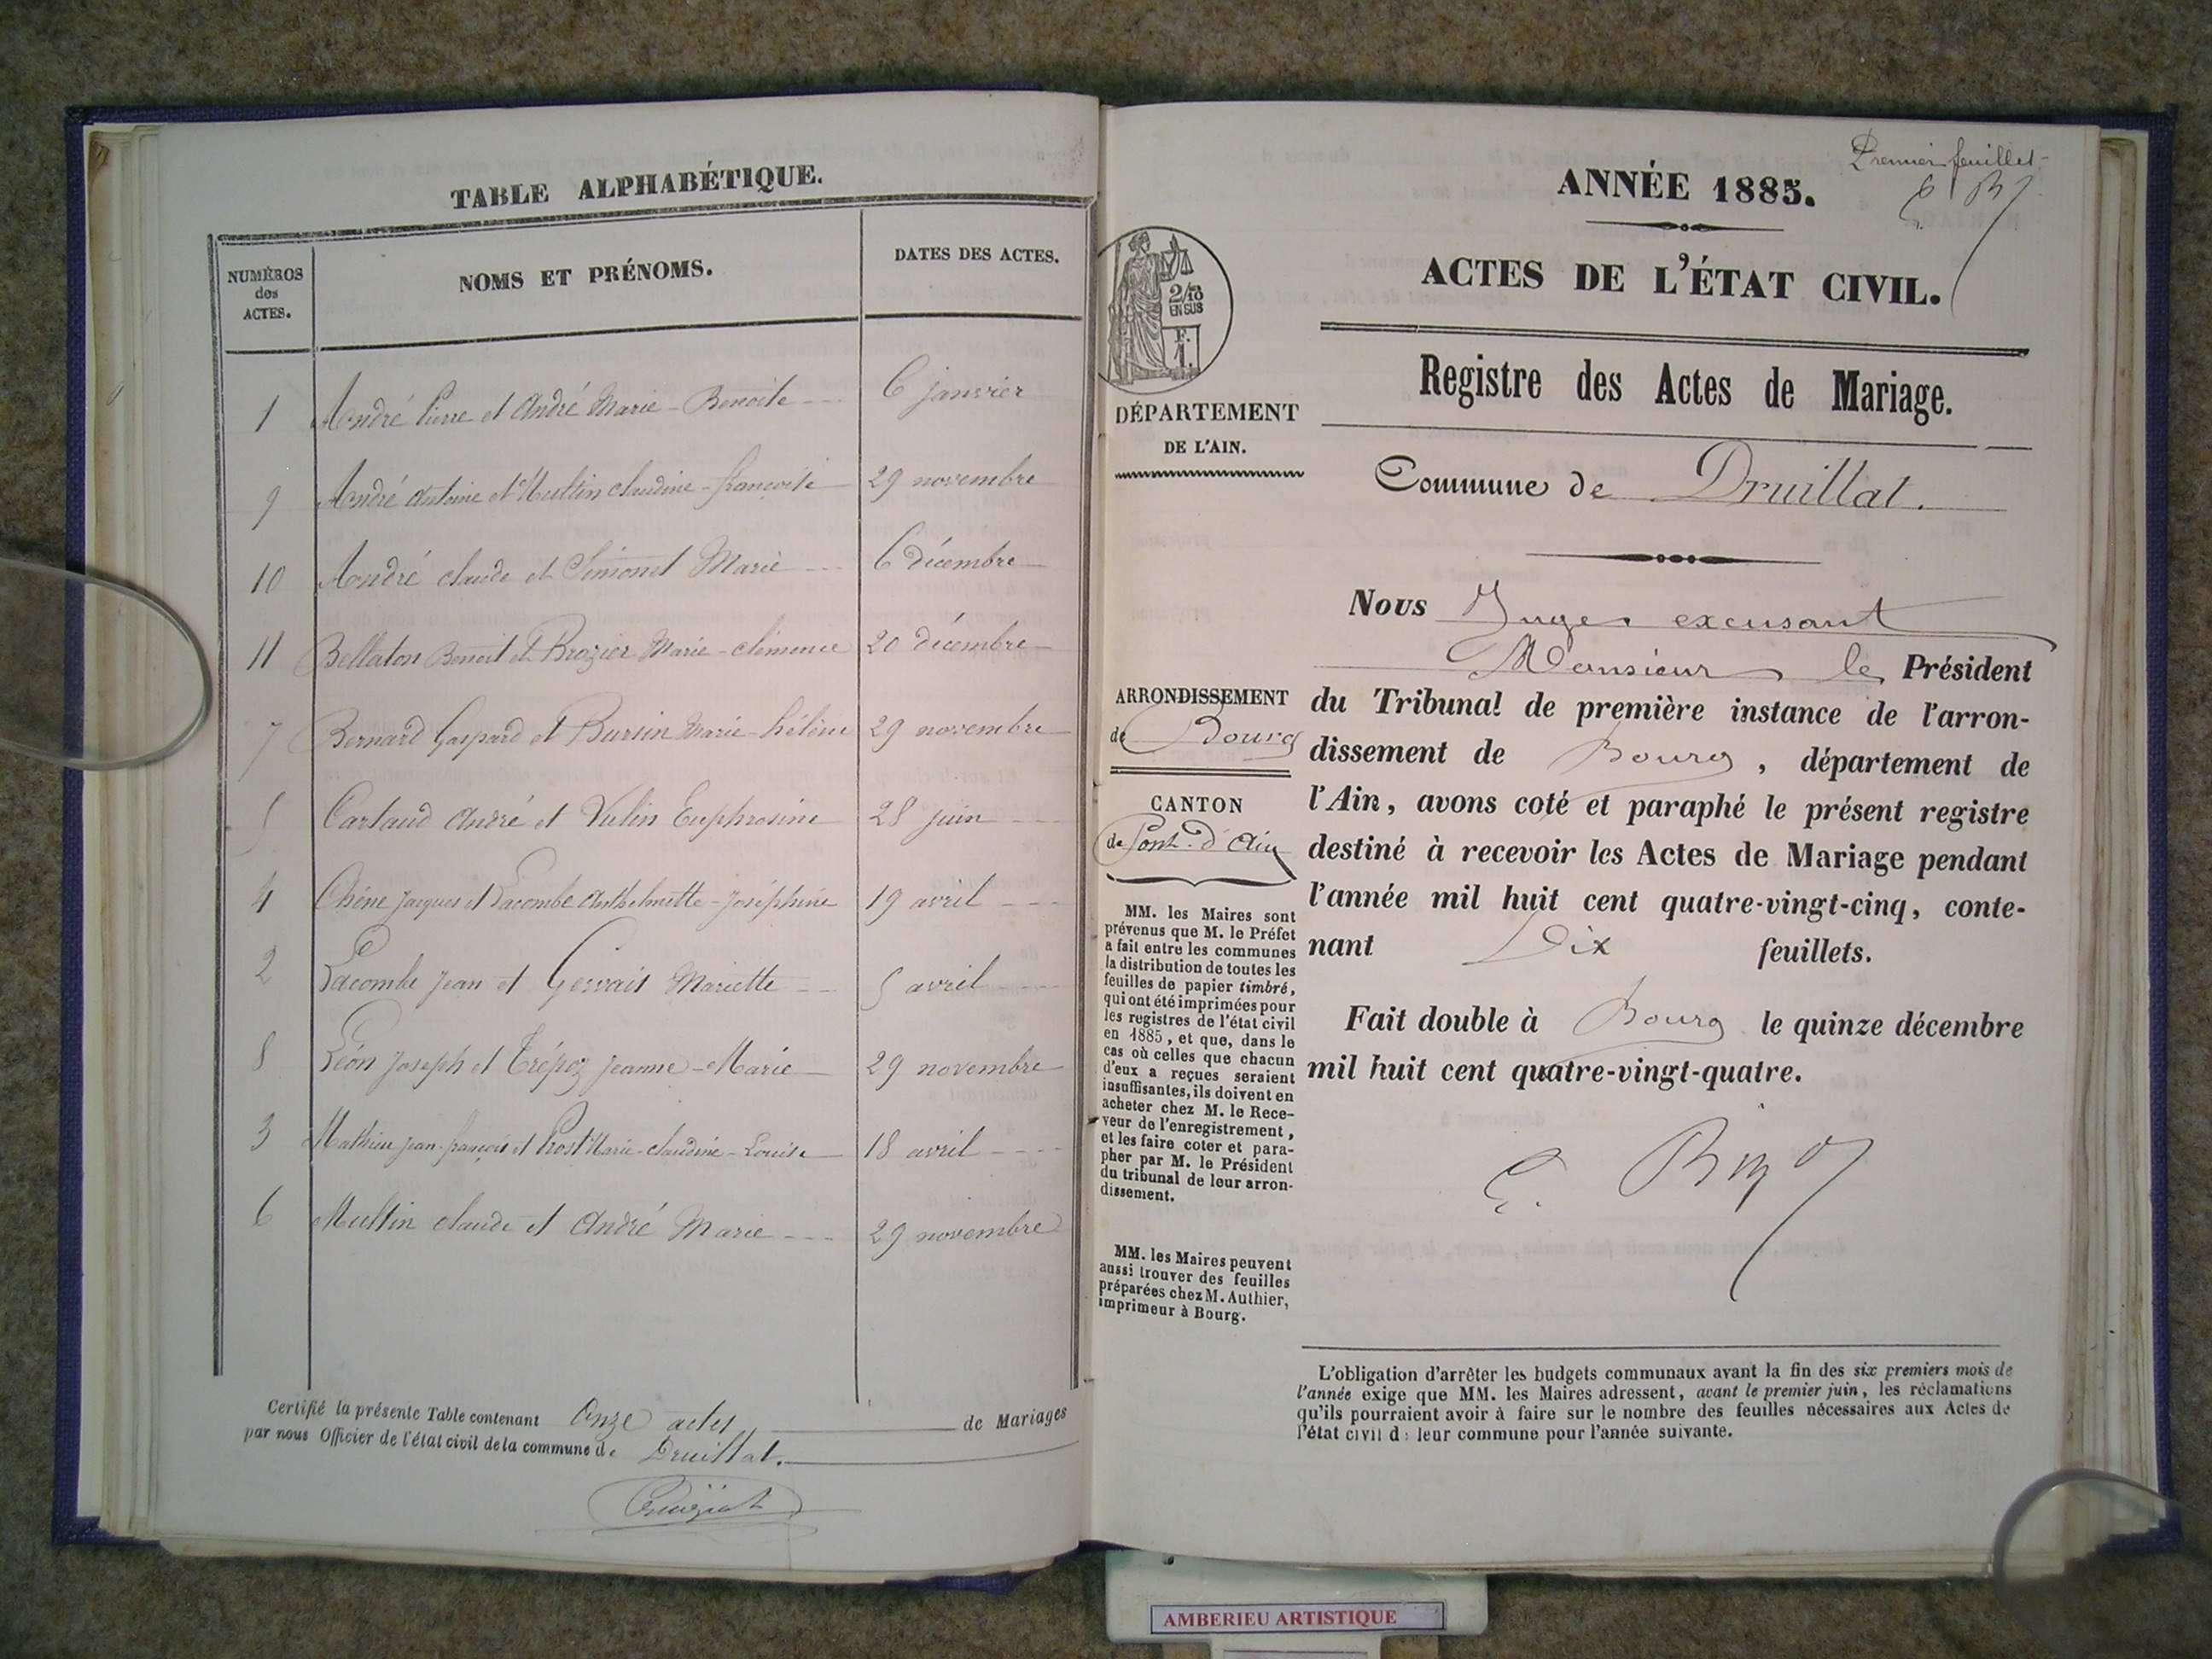 TABLE ALPHABÉTIQUE.
NUMÉROS
des
ACTES.
NOMS ET PRÉNOMS.
DATES DES ACTES.
1 André Pierre et André Marie-Benoite 6 janvier
9 André Antoine et Multin claudine-françoise 29 novembre
10 André claude et Simonet Marie 6 décembre
11 Bellaton Benoit et Brozier Marie-clémence 20 décembre
7 Bernard Gaspard et Bursin Marie-hélène 29 novembre
5 Cartaud André et Vulin Euphrosine 28 juin
4 Chêne Jacques et Lacombe Anthelmette-Joséphine 19 avril
2 Lacombe Jean et Gervais Mariette 5 avril
8 Léon Joseph et Trépoz Jeanne-Marie 29 novembre
3 Mathieu Jean-françois et Prost Marie-claudine-Louise 18 avril
6 Multin claude et André Marie 29 novembre
Certifié la présente Table contenant Onze actes de Mariages
par nous Officier de l'état civil de la commune de Druillat.
Premier feuillet
ANNÉE 1885.
ACTES DE L'ÉTAT CIVIL.
Registre des Actes de Mariage.
Commune de Druillat.
2/10
EN SUS
F.
1.
DÉPARTEMENT
DE L'AIN.
ARRONDISSEMENT
de Bourg
CANTON
de Pont-d'Ain
MM. les Maires sont
prévenus que M. le Préfet
a fait entre les communes
la distribution de toutes les
feuilles de papier timbré,
qui ont été imprimées pour
les registres de l'état civil
en 1885, et que, dans le
cas où celles que chacun
d'eux a reçues seraient
insuffisantes, ils doivent en
acheter chez M. le Rece-
veur de l'enregistrement,
et les faire coter et para-
pher par M. le Président
du tribunal de leur arron-
dissement.
MM. les Maires peuvent
aussi trouver des feuilles
préparées chez M. Authier,
imprimeur à Bourg.
Nous Juge excusant
Monsieur le Président
du Tribunal de première instance de l'arron-
dissement de Bourg, département de
l'Ain, avons coté et paraphé le présent registre
destiné à recevoir les Actes de Mariage pendant
l'année mil huit cent quatre-vingt-cinq, conte-
nant Dix feuillets.
Fait double à Bourg le quinze décembre
mil huit cent quatre-vingt-quatre.
L'obligation d'arrêter les budgets communaux avant la fin des six premiers mois de
l'année exige que MM. les Maires adressent, avant le premier juin, les réclamations
qu'ils pourraient avoir à faire sur le nombre des feuilles nécessaires aux Actes de
l'état civil de leur commune pour l'année suivante.
AMBERIEU ARTISTIQUE